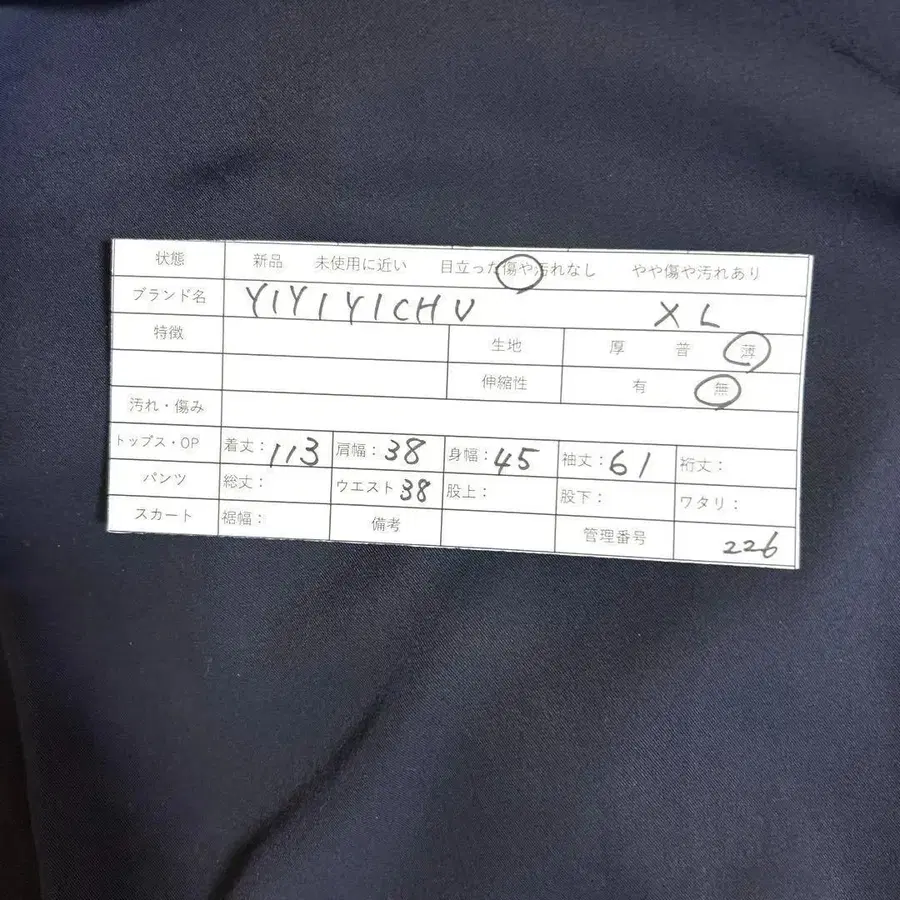 状態 新品 未使用に近い 目立った傷や汚れなし やや傷や汚れあり
ブランド名 YIYIYICHU XL
特徴 生地 厚 普 薄
伸縮性 有 無
汚れ・傷み
トップス・OP 着丈：113 肩幅：38 身幅：45 袖丈：61 裄丈：
パンツ 総丈： ウエスト 38 股上： 股下： ワタリ：
スカート 裾幅： 備考 管理番号 226